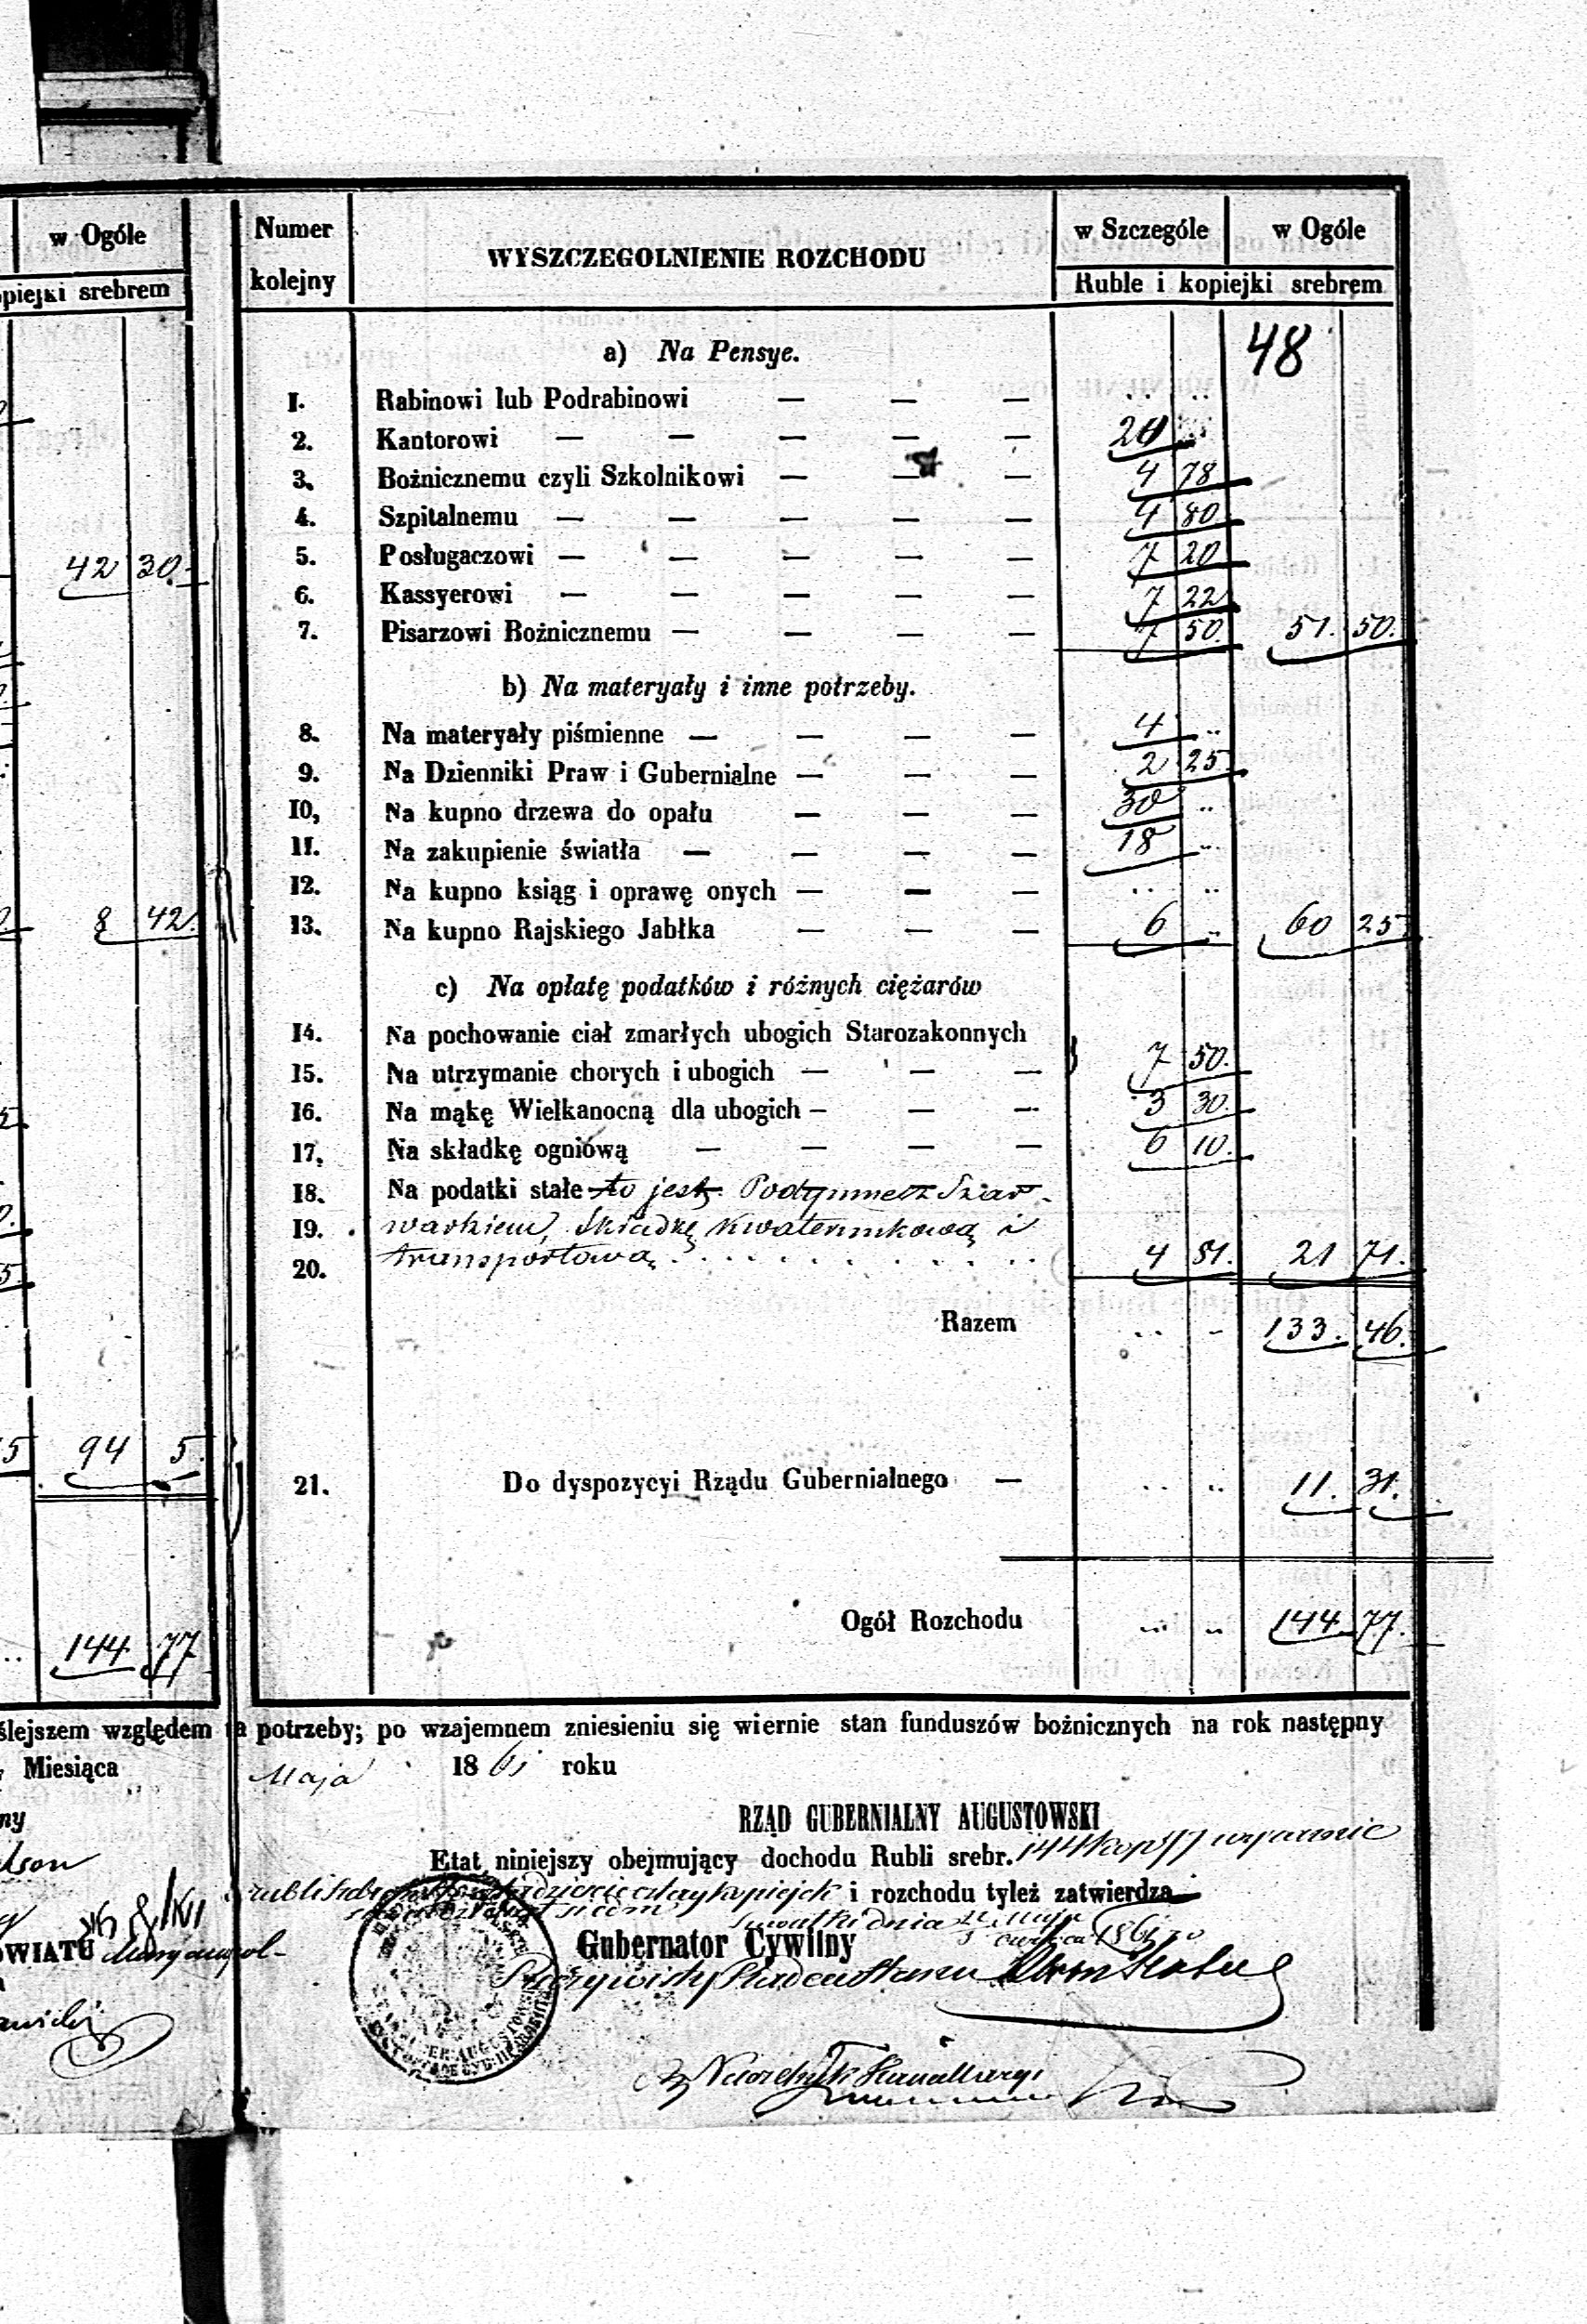 w Ogóle
kopiejki srebrem
42 30.
8 42.
94 5.
144 77
Numer kolejny WYSZCZEGOLNIENIE ROZCHODU w Szczególe w Ogóle
Ruble i kopiejki srebrem
48
a) Na Pensye.
1. Rabinowi lub Podrabinowi — — — .. ..
2. Kantorowi — — — — — 20
3. Bożnicznemu czyli Szkolnikowi — — — 4 78
4. Szpitalnemu — — — — — 4 80
5. Posługaczowi — — — — — 7 20
6. Kassyerowi — — — — — 7 22
7. Pisarzowi Bożnicznemu — — — — 7 50. 51. 50.
b) Na materyały i inne potrzeby.
8. Na materyały piśmienne — — — — 4 ..
9. Na Dzienniki Praw i Gubernialne — — — 2 25
10, Na kupno drzewa do opału — — — 30 ..
11. Na zakupienie światła — — — — 18 ..
12. Na kupno ksiąg i oprawę onych — — — .. ..
13. Na kupno Rajskiego Jabłka — — — 6 .. 60 25
c) Na opłatę podatków i różnych ciężarów
14. Na pochowanie ciał zmarłych ubogich Starozakonnych
15. Na utrzymanie chorych i ubogich — — — 7 50.
16. Na mąkę Wielkanocną dla ubogich — — — 3 30.
17, Na składkę ogniową — — — — 6 10.
18. Na podatki stałe to jest: Podymne Szar-
19. warkiem, Składkę Kwaterunkową i
20. transportową . . . . . . . . . . 4 81. 21 71.
Razem .. - 133. 46.
21. Do dyspozycyi Rządu Gubernialnego — .. .. 11. 31.
Ogół Rozchodu ... .. 144 77.
ślejszem względem na potrzeby; po wzajemnem zniesieniu się wiernie stan funduszów bożnicznych na rok następny
Miesiąca Maja 1861 roku
RZĄD GUBERNIALNY AUGUSTOWSKI
Etat niniejszy obejmujący dochodu Rubli srebr. 144 kop 77 wyraźnie
rubli sto czterdzieści cztery kopiejek i rozchodu tyleż zatwierdza
siedmdziesiąt siedm Suwałki dnia Maja
Czerwca 1861 ro
OWIATU Maryampol-
Gubernator Cywilny
Rzeczywisty Radca Stanu
Naczelnik Kancellaryi